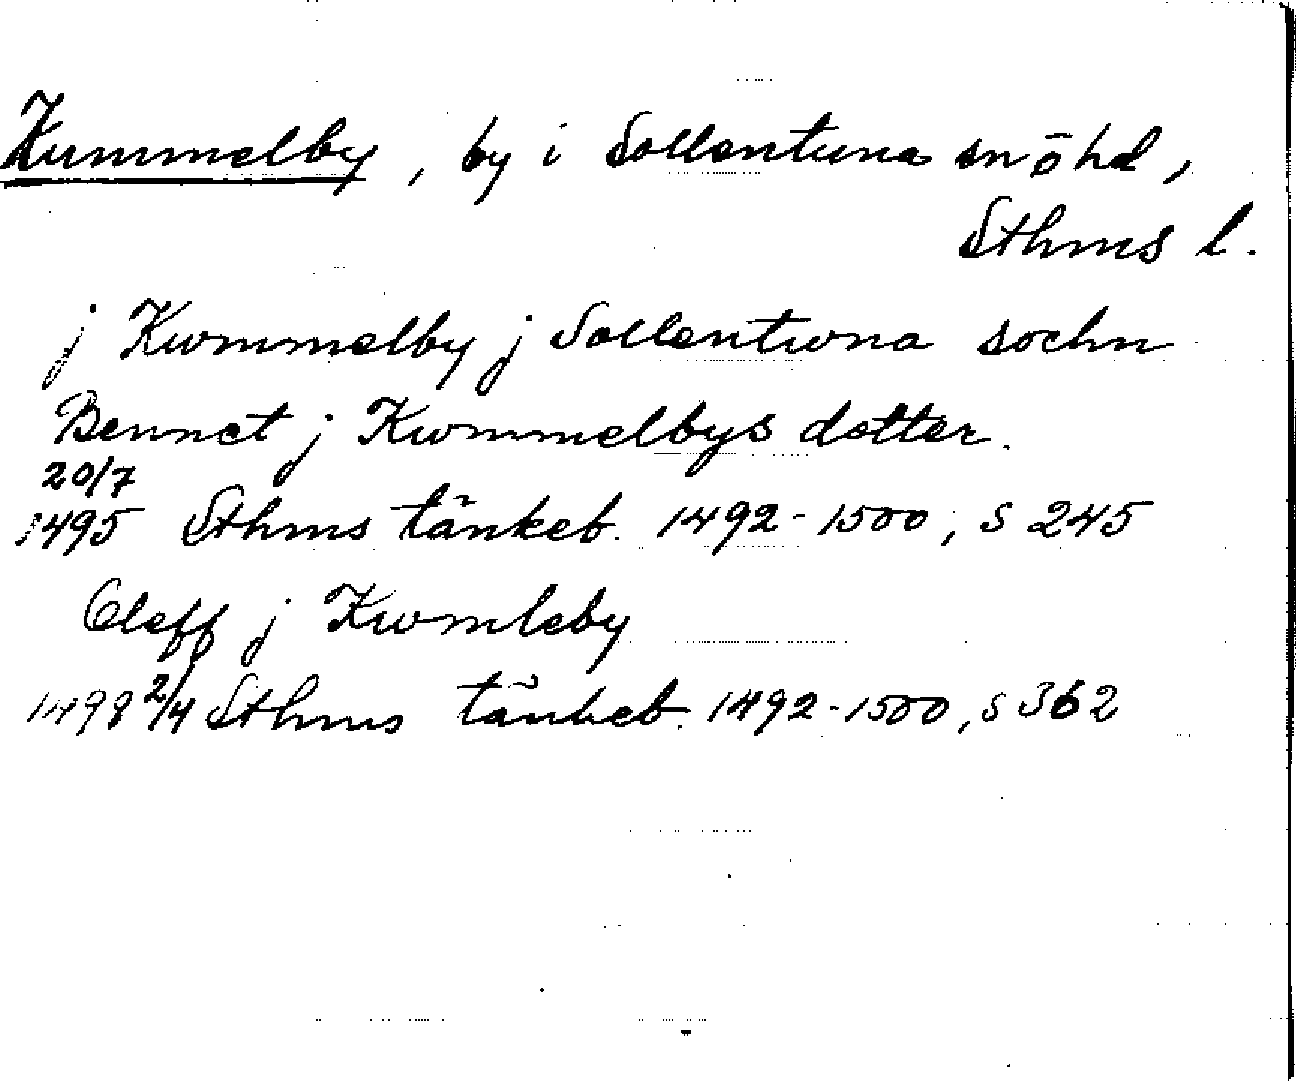 Kummelby, by i Sollentuna sn ō hd,
Sthms l.
j Kwmmelby j Sollentwna sochn
Bennet j Kwmmelbys dotter.
20/7
1495 Sthms tänkeb. 1492-1500, s 245
Oleff j Kwmleby
1498 2/4 Sthms tänkeb. 1492-1500, s 362